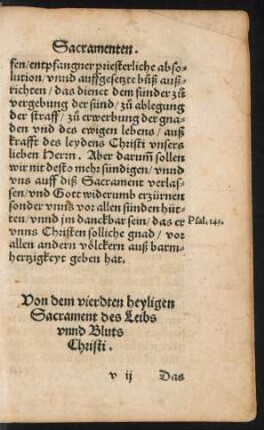 Sacramenten.
sen/entpfangner priesterliche abso-
lution/vnnd auffgesetzte bůß auß-
richten/das dienet dem sünder zů
vergebung der sünd/zů ablegung
der straff/zů erwerbung der gna-
den vnd des ewigen lebens/auß
krafft des leydens Christi vnsers
lieben Herrn. Aber darum̃ sollen
wir nit desto mehr sündigen/vnnd
vns auff diß Sacrament verlas-
sen/vnd Gott widerumb erzürnen
sonder vnns vor allen sünden hüt-
ten/vnnd jm danckbar sein/das er
Psal. 145.
vnns Christen solliche gnad/vor
allen andern völckern auß barm-
hertzigkeyt geben hat.
Von dem vierdten heyligen
Sacrament des Leibs
vnnd Bluts
Christi.
v ij Das